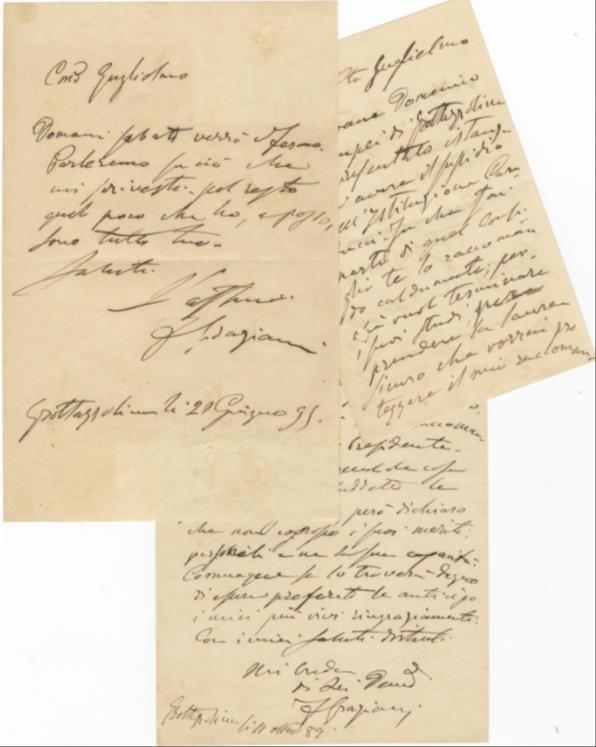 Caro Guglielmo
Domani sabato verrò a Fermo.
Parleremo su ciò che
mi scrivesti. Del resto
quel poco che ho, e posso,
sono tutto tuo.
Saluti.
L'affmo
Graziani
Grottazzolina li 21 Giugno 95.
Guglielmo
Domenico
di Grottazzolina
presentato istanza
avere il sussidio
dell'Istituzione
che fai
parte di quel Consi-
glio te lo raccoman
do caldamente, per-
chè vuol terminare
i suoi studi, e
prendere la laurea
sicuro che vorrai pro
teggere il mio raccoman
Presidente.
le
però dichiaro
che non conosco i suoi meriti
personali e ne la sua capacità.
Comunque se lo troverà degno
di essere preferito le anticipo
i miei più vivi ringraziamenti.
Con i miei saluti distinti.
Mi creda
di Lei Dev.
Graziani
Grottazzolina li 89.